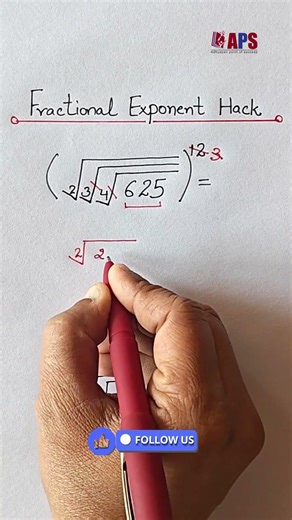 APS
Fractional Exponent Hack
(²√³√⁴√625)¹² ³ =
²√2
FOLLOW US